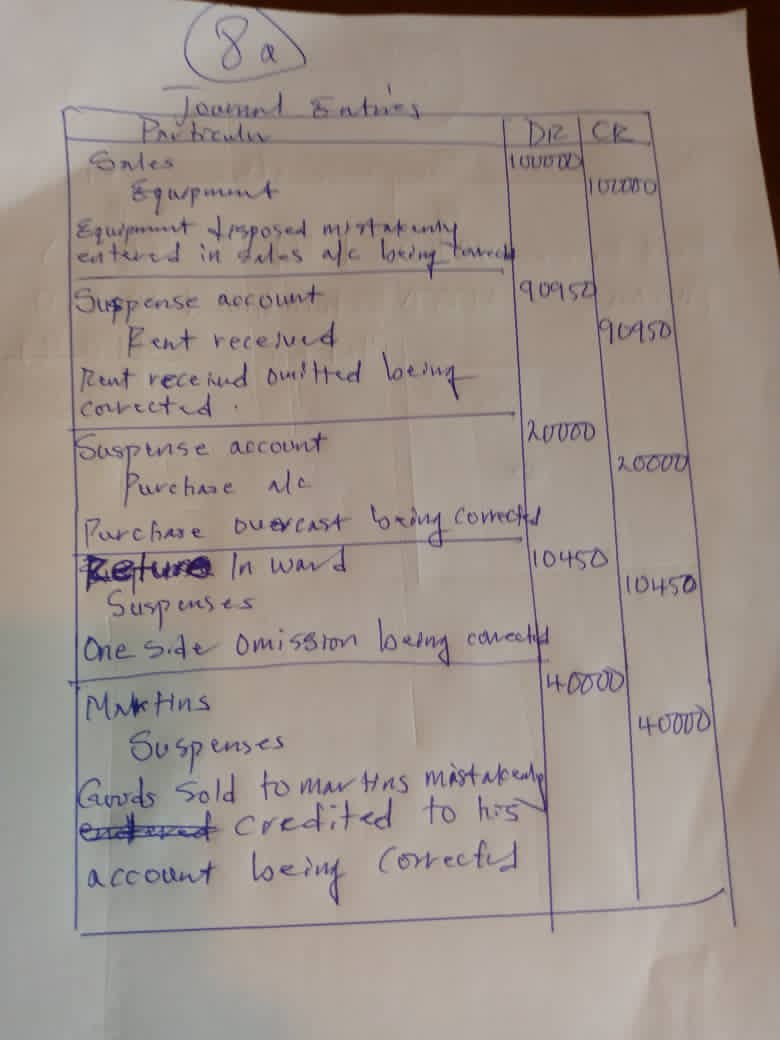 8a
Journal Entries
Particular DR CR
Sales 100000
Equipment 100000
Equipment disposed mistakenly
entered in sales a/c being
Suspense account 90950
Rent received 90950
Rent received omitted being
corrected.
Suspense account 20000
Purchase a/c 20000
Purchase overcast being corrected
Return In ward 10450
Suspenses 10450
One side omission being corrected
Martins 40000
Suspenses 40000
Goods sold to martins mistakenly
credited to his
account being corrected